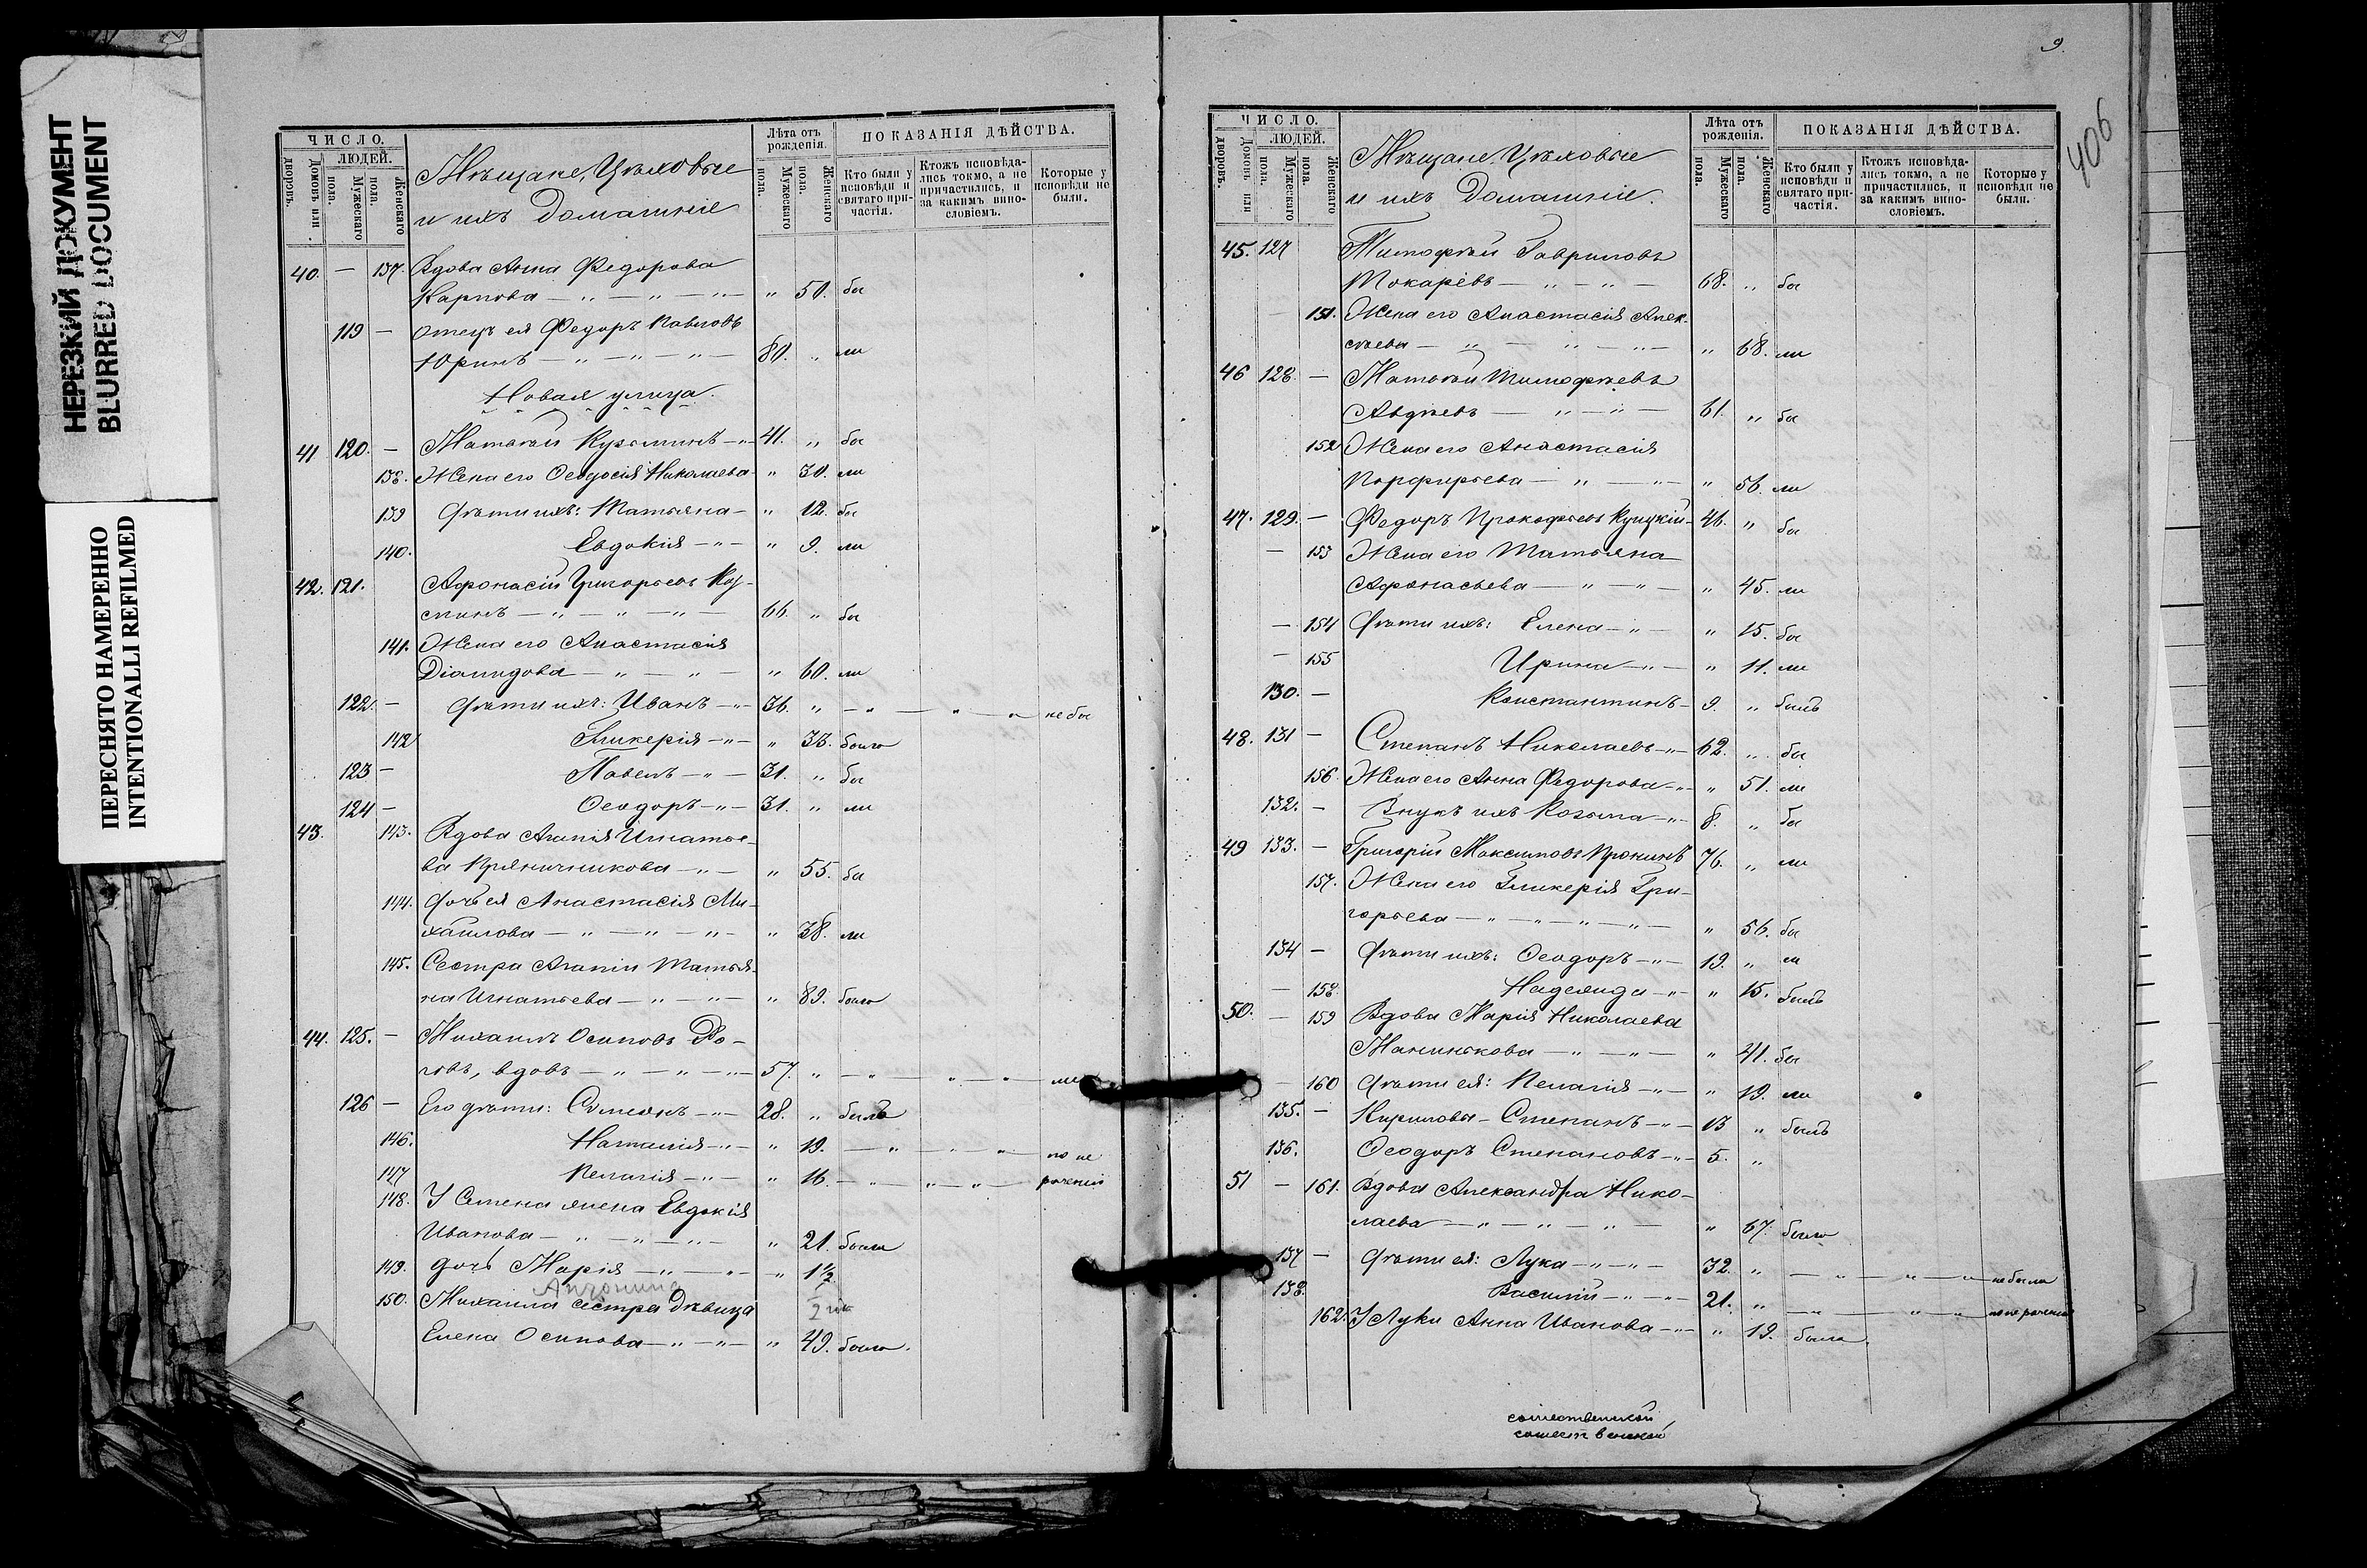 НЕРЕЗКИЙ ДОКУМЕНТ
BLURRED DOCUMENT
ПЕРЕСНЯТО НАМЕРЕННО
INTENTIONALLI REFILMED
ЧИСЛО.
ЛЮДЕЙ.
дворовъ.
Домовъ или
Мужескаго пола.
Женскаго пола.
Мѣщане, Цѣховые
и ихъ Домашніе
Лѣта отъ рожденія.
Мужескаго пола.
Женскаго пола.
ПОКАЗАНІЯ ДѢЙСТВА.
Кто были у исповѣди и святаго при-частія.
Ктожъ исповѣда-лись токмо, а не причастились, и за какимъ вино-словіемъ.
Которые у исповѣди не были.
40. — 137. Вдова Анна Федорова
Карпова — „ — „ — „ — „ 50. бы
119 — Отецъ ея Федоръ Павловъ
Юринъ — „ — „ — „ — 80. „ ли
Новая улица.
41 120. — Матвѣй Кузьминъ — „ — 41. „ бы
138. Жена его Ѳеодосія Николаева „ 30. ли
139 Дѣти ихъ: Татьяна — „ 12. бы
140. Евдокія — „ — „ 9. ли
42. 121. Афонасій Григорьевъ Куз-
минъ — „ — „ — „ — 66. „ бы
141. Жена его Анастасія
Діамидова — „ — „ — „ 60. ли
122. — Дѣти ихъ: Иванъ — „ — 36. „ — „ — „ — „ не бы
142 Гликерія — „ — „ 33. была
123 — Павелъ — „ — 31. „ бы
124 — Ѳеодоръ — „ — 31. „ ли
43. 143. Вдова Агапія Игнатье-
ва Пряничникова — „ — „ 55. бы
144. Дочь ея Анастасія Ми-
хайлова — „ — „ — „ — „ 38. ли
145. Сестра Агапіи Татья-
на Игнатьева — „ — „ — „ 89. была
44. 125. — Михаилъ Осиповъ Ро-
говъ, вдовъ — „ — „ — „ — 57. „ — „ — „ — „ — ли
126 — Его дѣти: Симеонъ — „ — 28. „ былъ
146. Наталія — „ — „ 19. — „ — „ — „ — по не
147 Пелагія — „ — „ 16. — „ — „ — „ — раченію
148. У Семена жена Евдокія
Иванова — „ — „ — „ — „ 21. была
149. Дочь Марія — „ — „ — „ 1½
Антонина
150. Михаила сестра Дѣвица
Елена Осипова — „ — „ — „ 49. была.
9.
406
ЧИСЛО.
ЛЮДЕЙ.
дворовъ.
Домовъ или
Мужескаго пола.
Женскаго пола.
Мѣщане, Цѣховые
и ихъ Домашніе.
Лѣта отъ рожденія.
Мужескаго пола.
Женскаго пола.
ПОКАЗАНІЯ ДѢЙСТВА.
Кто были у исповѣди и святаго при-частія.
Ктожъ исповѣда-лись токмо, а не причастились, и за какимъ вино-словіемъ.
Которые у исповѣди не были.
45. 127 Тимофѣй Гавриловъ
Токарѣвъ — „ — „ — 68. „ бы
151. Жена его Анастасія Алек-
сѣева — „ — „ — „ — „ 68. ли
46 128. — Матвѣй Тимофѣевъ
Авдѣевъ — „ — „ — 61. „ бы
152 Жена его Анастасія
Порфирьева — „ — „ — „ 56. ли
47. 129. — Федоръ Прокофьевъ Куцкій — 46. „ бы
— 153 Жена его Татьяна
Афонасьева — „ — „ — „ 45. ли
— 154 Дѣти ихъ: Елена — „ — „ 15. бы
— 155 Ирина — „ — „ 11. ли
130. — Константинъ — 9. „ былъ
48. 131 — Степанъ Николаевъ — „ — 62. „ бы
156. Жена его Анна Федорова — „ — „ 51. ли
132. — Внукъ ихъ Козьма — „ — 8. „ бы
49 133. — Григорій Максимовъ Пронинъ 76. „ ли
157. Жена его Гликерія Гри-
горьева — „ — „ — „ — „ — „ 56. бы
134 — Дѣти ихъ: Ѳеодоръ — „ — 19. „ ли
— 158. Надежда — „ — „ 15. былъ
50. — 159 Вдова Марія Николаева
Манинькова — „ — „ — „ 41. бы
— 160 Дѣти ея: Пелагія — „ — „ 19. ли
135. — Кириловы — Степанъ — „ — 13 „ былъ
136. Ѳеодоръ Степановъ — „ — 5. „
51 — 161. Вдова Александра Нико-
лаева — „ — „ — „ — „ 67. была
137 — Дѣти ея: Лука — „ — „ — 32. „ — „ — „ — „ не были
138. Василій — „ — „ — 21. „ — „ — „ — „ по не раченію
162. У Луки Анна Иванова — „ — „ 19. была.